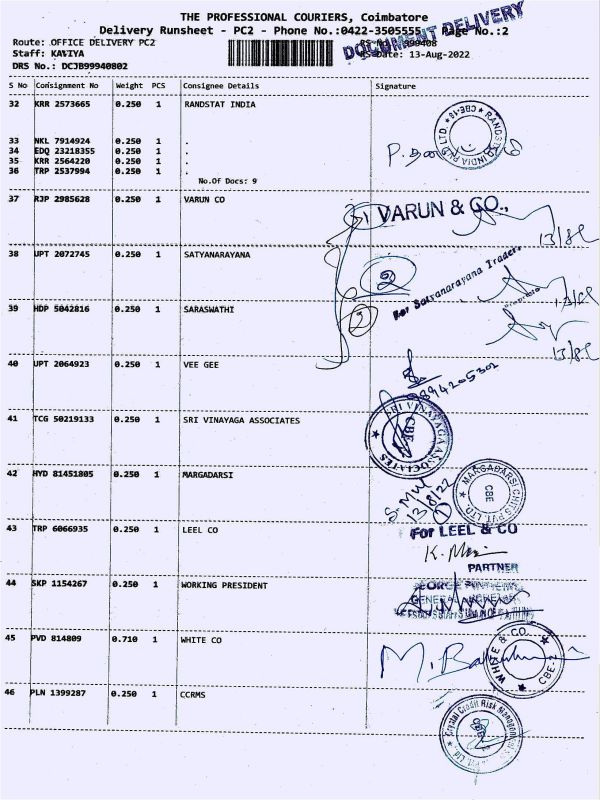 THE PROFESSIONAL COURIERS, Coimbatore
Delivery Runsheet - PC2 - Phone No.:0422-3505555 Page No.:2
DOCUMENT DELIVERY
Route: OFFICE DELIVERY PC2
Staff: KAVIYA
Date: 13-Aug-2022
DRS No.: DCJB99940802
S No Consignment No Weight PCS Consignee Details Signature
32 KRR 2573665 0.250 1 RANDSTAT INDIA
33 NKL 7914924 0.250 1 .
34 EDQ 23218355 0.250 1 .
35 KRR 2564220 0.250 1 .
36 TRP 2537994 0.250 1 .
No.Of Docs: 9
37 RJP 2985628 0.250 1 VARUN CO
VARUN & CO.,
38 UPT 2072745 0.250 1 SATYANARAYANA
2
For Satyanarayana Traders
39 HDP 5042816 0.250 1 SARASWATHI
2
40 UPT 2064923 0.250 1 VEE GEE
9894205302
41 TCG 50219133 0.250 1 SRI VINAYAGA ASSOCIATES
SRI VINAYAGA ASSOCIATES
CBE
42 HYD 81451805 0.250 1 MARGADARSI
MARGADARSI CHITS PVT. LTD.
CBE
13/8/22
1
43 TRP 6066935 0.250 1 LEEL CO
For LEEL & CO
PARTNER
44 SKP 1154267 0.250 1 WORKING PRESIDENT
45 PVD 814809 0.710 1 WHITE CO
WHITE & CO.
CBE-2
46 PLN 1399287 0.250 1 CCRMS